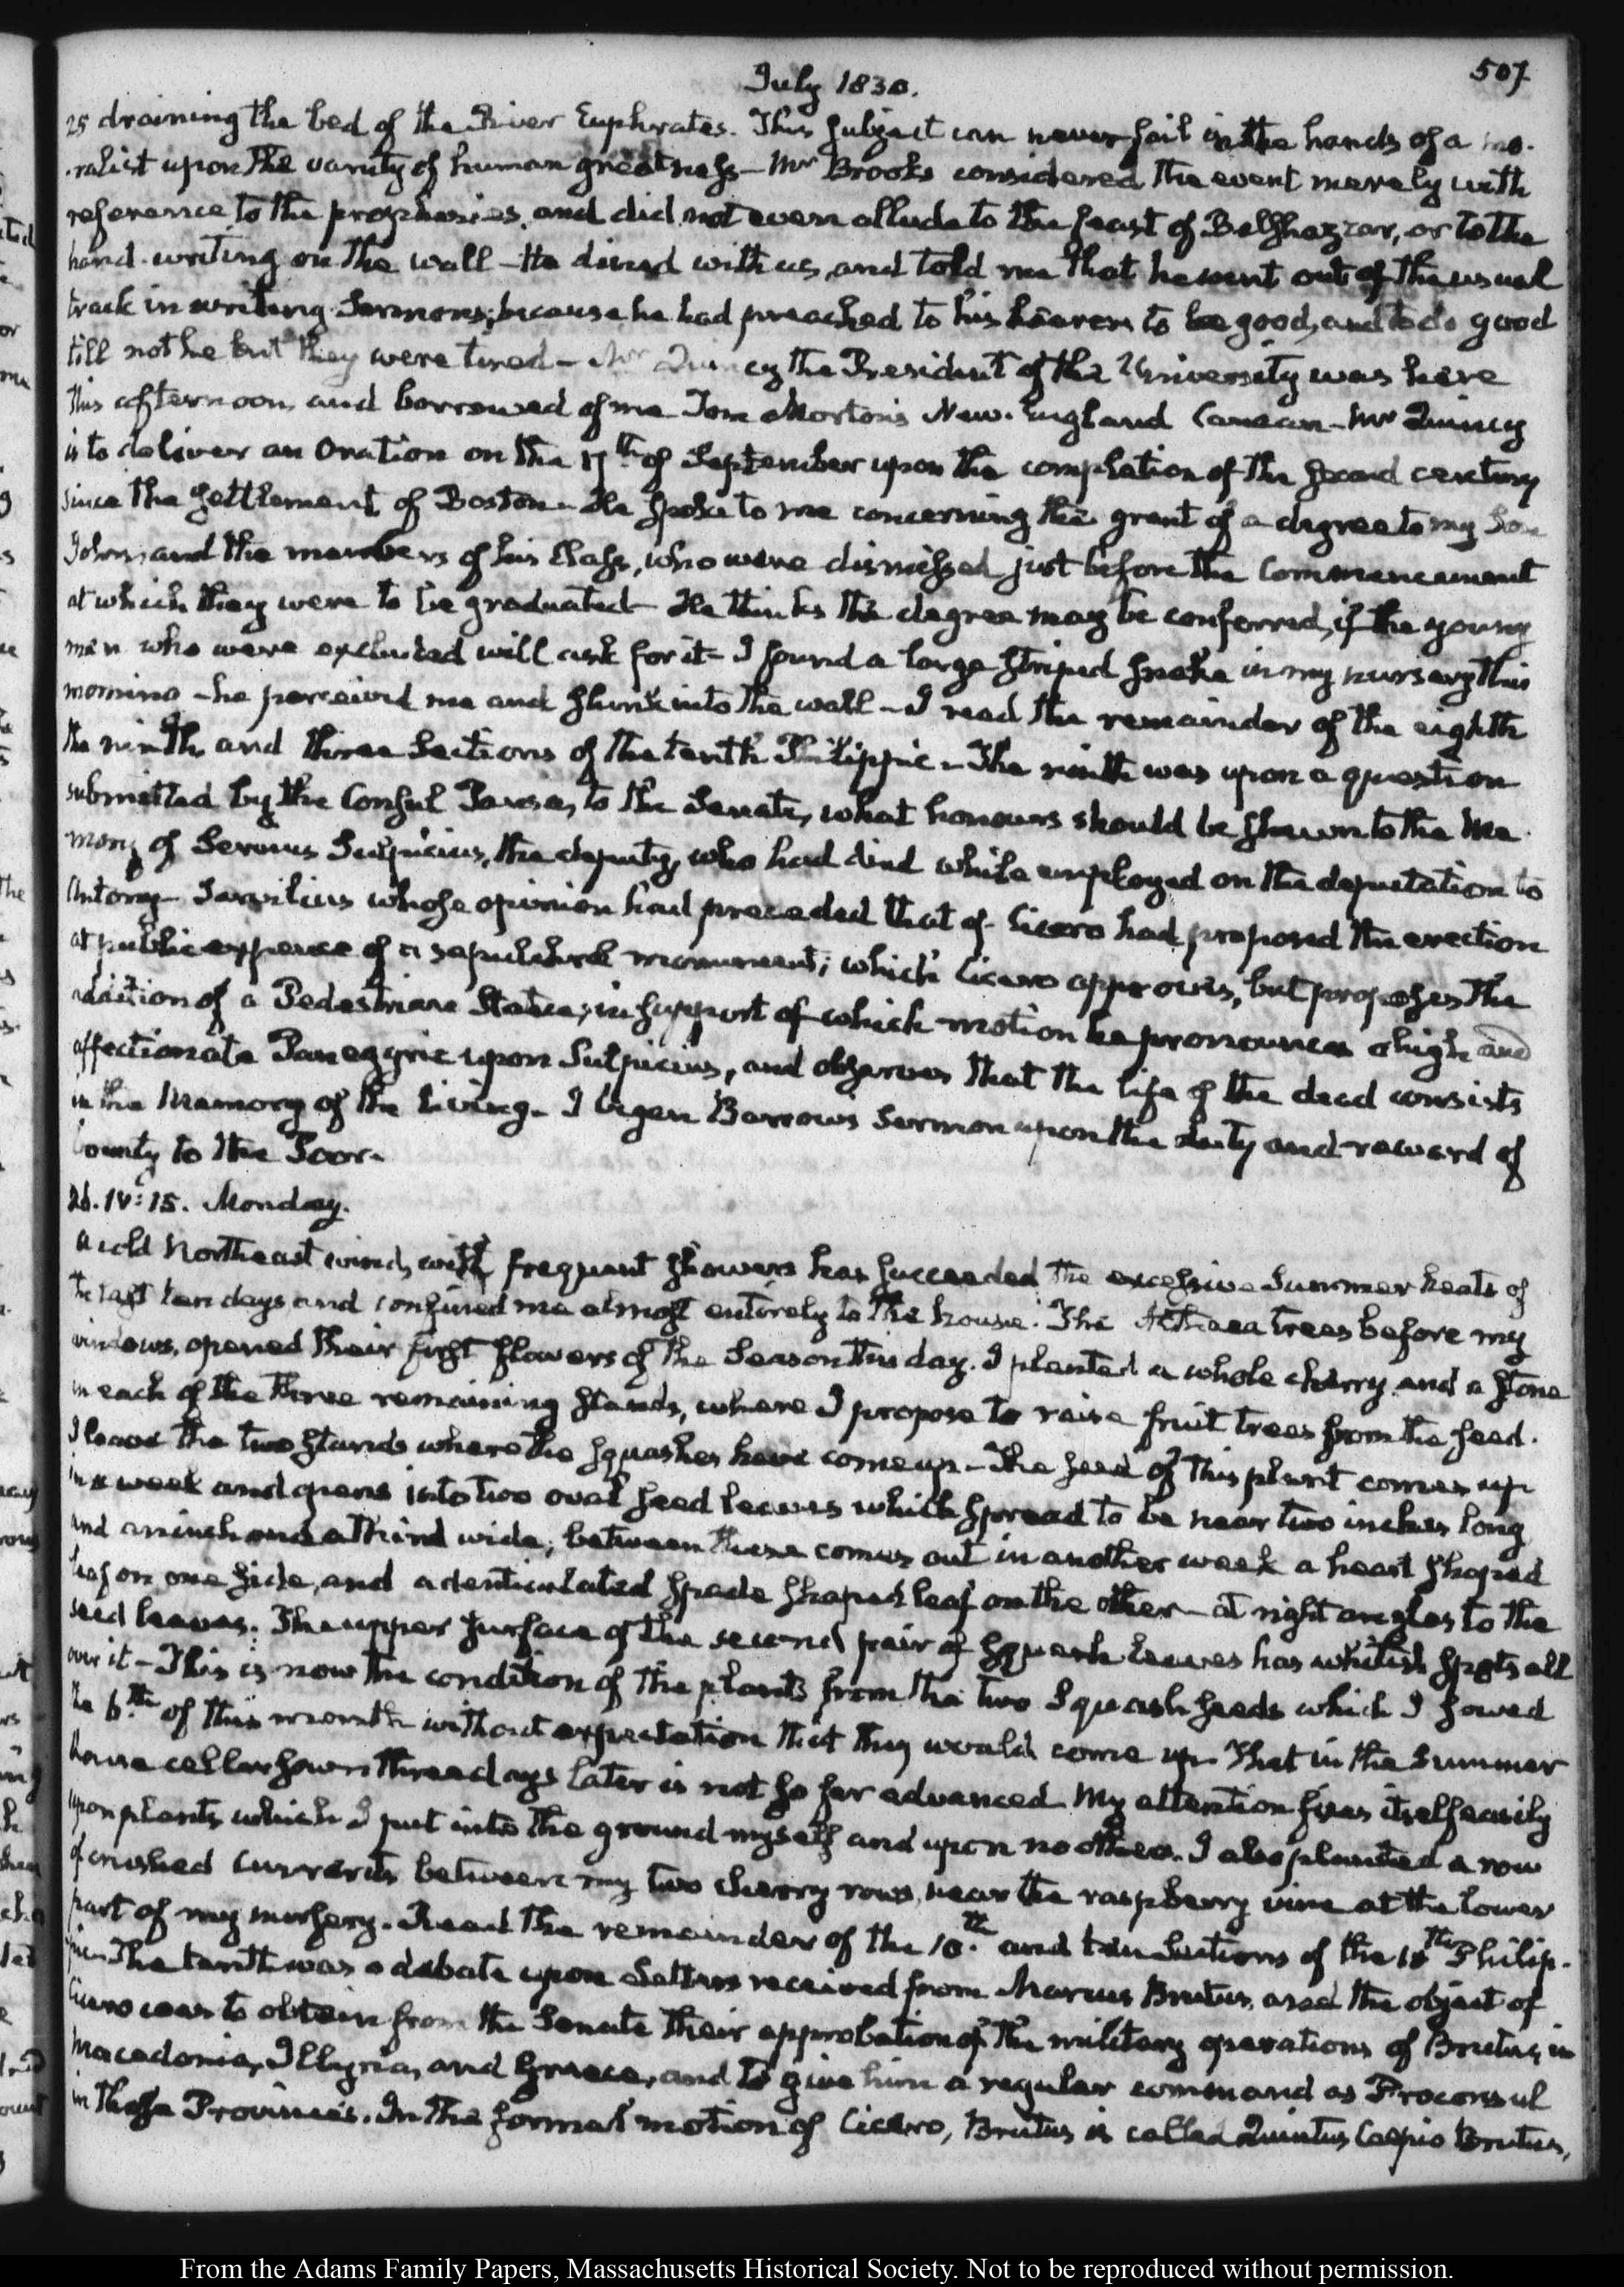 July 1830.
507
25 draining the bed of the River Euphrates. This subject can never fail in the hands of a mo-
-ralist upon the vanity of human greatness— Mr Brooks considered the event merely with
reference to the prophecies, and did not even allude to the feast of Belshazzar, or to the
hand-writing on the wall— He dined with us, and told me that he went out of the usual
track in writing Sermons; because he had preached to his hearers to be good, and to do good
till not he but they were tired— Mr Quincy the President of the University was here
this afternoon, and borrowed of me Tom Morton's New-England Canaan— Mr Quincy
is to deliver an Oration on the 17th of September upon the completion of the second century
since the settlement of Boston— He spoke to me concerning the grant of a degree to my Son
John, and the members of his Class, who were dismissed just before the Commencement
at which they were to be graduated— He thinks the degree may be conferred, if the young
men who were excluded will ask for it— I found a large striped snake in my nursery this
morning— he perceived me and slunk into the wall— I read the remainder of the eighth
the ninth and three Sections of the tenth Philippic— The ninth was upon a question
submitted by the Consul Pansa, to the Senate, what honours should be shewn to the Me-
mory of Servius Sulpicius, the deputy, who had died while employed on the deputation to
Antony— Servilius whose opinion had preceded that of Cicero had proposed the erection
at public expence of a sepulchral monument; which Cicero approves, but proposes the
addition of a Pedestrian Statue; in support of which motion he pronounces a high and
affectionate Panegyric upon Sulpicius, and observes that the life of the dead consists
in the Memory of the living— I began Barrow's Sermon upon the duty and reward of
bounty to the Poor—
26. IV:15. Monday.
A cold Northeast wind, with frequent showers has succeeded the excessive Summer heats of
the last ten days and confined me almost entirely to the house. The Althaea trees before my
windows, opened their first flowers of the Season this day. I planted a whole cherry and a stone
in each of the three remaining stands, where I propose to raise fruit trees from the seed.
I leave the two stands where the squashes have come up— The seed of this plant comes up
in a week and opens into two oval seed leaves which spread to be near two inches long
and an inch and a third wide; between these comes out in another week a heart shaped
leaf on one side, and a denticulated spade shaped leaf on the other— at right angles to the
seed leaves. The upper surface of the second pair of squash leaves has whitish spots all
over it— This is now the condition of the plants from the two Squash seeds which I sowed
the 6th of this month without expectation that they would come up— That in the Summer
house cellar sown three days later is not so far advanced. My attention fixes itself easily
upon plants which I put into the ground myself and upon no others. I also planted a row
of crushed Currants between my two cherry rows, near the raspberry vine at the lower
part of my nursery. Read the remainder of the 10th and ten Sections of the 11th Philip-
pic— The tenth was a debate upon Letters received from Marcus Brutus, and the object of
Cicero was to obtain from the Senate their approbation of the military operations of Brutus, in
Macedonia, Illyria, and Greece, and to give him a regular command as Proconsul
in those Provinces. In the formal motion of Cicero, Brutus is called Quintus Caepio Brutus,
From the Adams Family Papers, Massachusetts Historical Society. Not to be reproduced without permission.